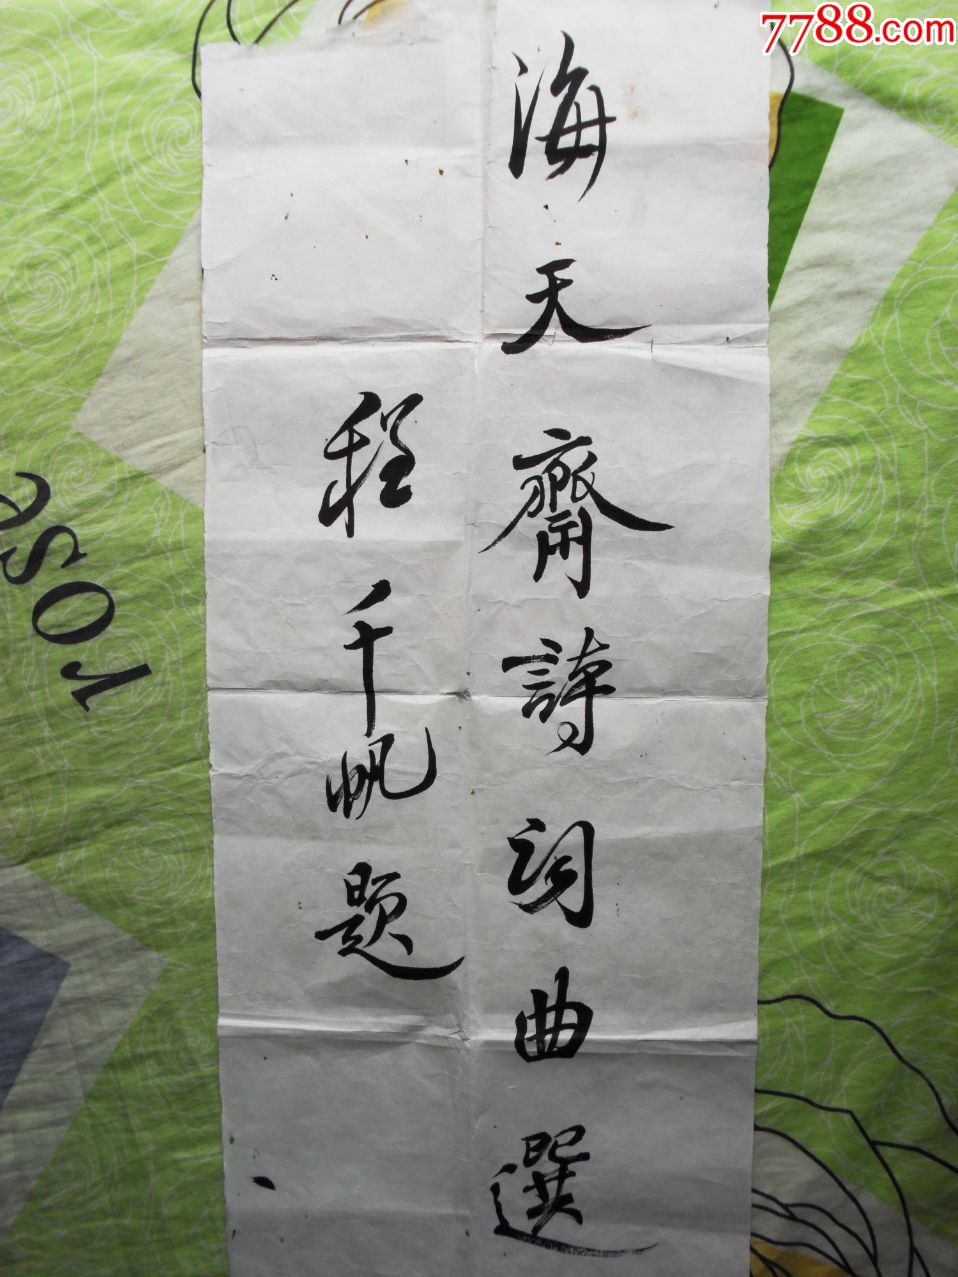 7788.com
海天齋詩词曲選
程千帆题
1OS2